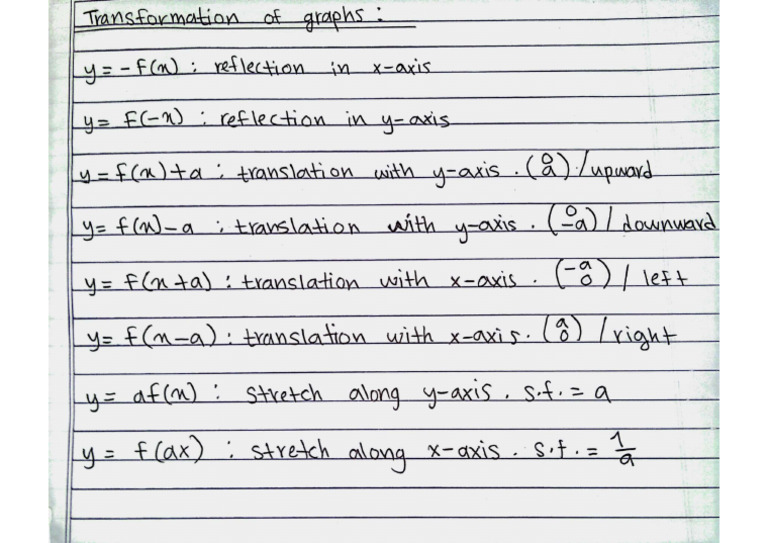 Transformation of graphs:
y = -f(x) : reflection in x-axis
y = f(-x) : reflection in y-axis
y = f(x)+a : translation with y-axis. (0 a) / upward
y = f(x)-a : translation with y-axis. (0 -a) / downward
y = f(x+a) : translation with x-axis. (-a 0) / left
y = f(x-a) : translation with x-axis. (a 0) / right
y = af(x) : stretch along y-axis. s.f. = a
y = f(ax) : stretch along x-axis. s.f. = 1/a